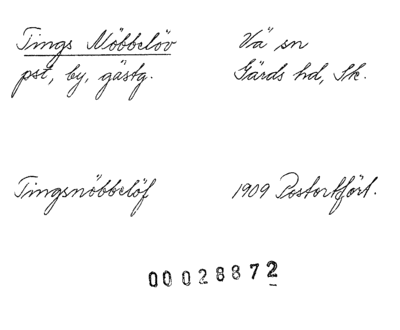 Tings Nöbbelöv
Vä sn
pst, by, gästg.
Gärds hd, Sk.
Tingsnöbbelöf
1909 Postortfört.
00028872